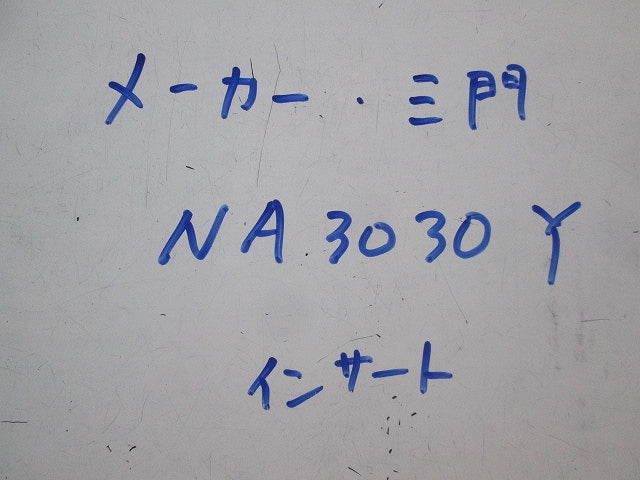 メーカー・三門
NA3030Y
インサート